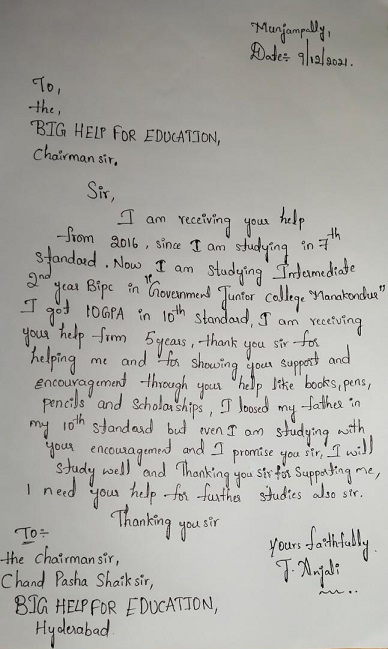 Munjampally,
Date:- 9/12/2021.
To,
the,
BIG HELP FOR EDUCATION,
Chairman sir,
Sir,
I am receiving your help
from 2016, since I am studying in 7th
standard. Now I am studying Intermediate
2nd year Bipc in "Government Junior College Manakondur"
I got 10GPA in 10th standard, I am receiving
your help from 5years, thank you sir for
helping me and for showing your support and
encouragement through your help like books, pens,
pencils and scholarships, I loosed my father in
my 10th standard but even I am studying with
your encouragement and I promise you sir, I will
study well and Thanking you sir for supporting me,
I need your help for further studies also sir.
Thanking you sir
To:-
the Chairman sir,
Chand Pasha Shaik sir,
BIG HELP FOR EDUCATION,
Hyderabad.
Yours faithfully
J. Anjali